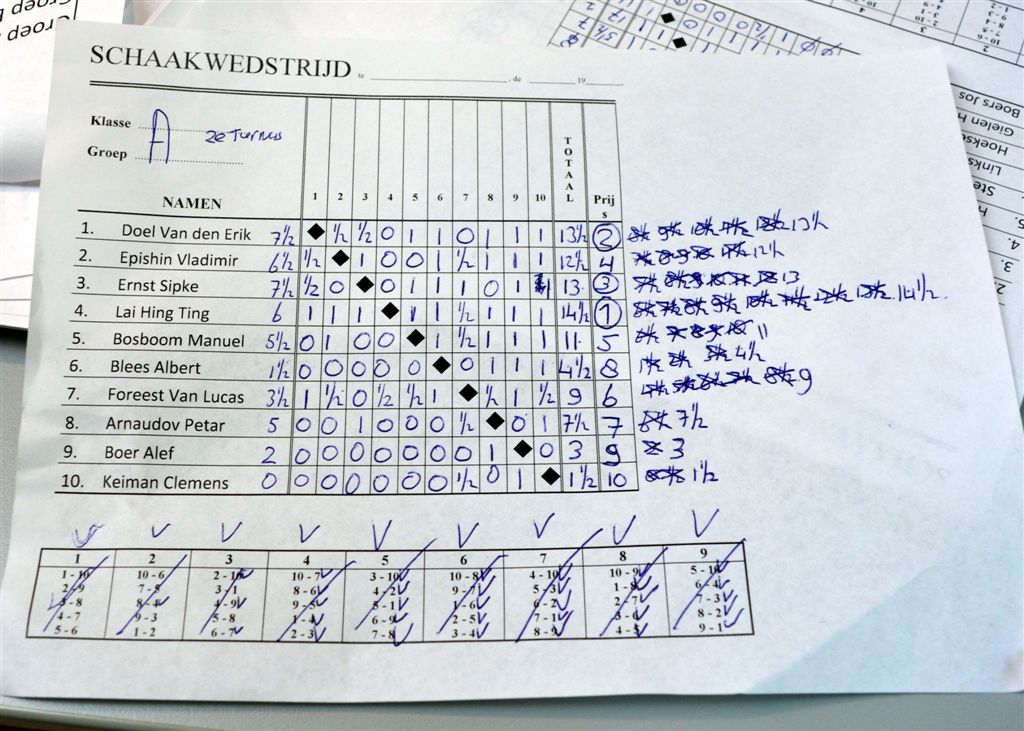 SCHAAKWEDSTRIJD te , de 19
Klasse A 2e Turnus
Groep
NAMEN 1 2 3 4 5 6 7 8 9 10 TOTAAL Prijs
1. Doel Van den Erik 7½ ◆ ½ ½ 0 1 1 0 1 1 1 13½ 2 13½
2. Epishin Vladimir 6½ ½ ◆ 1 0 0 1 ½ 1 1 1 12½ 4 12½
3. Ernst Sipke 7½ ½ 0 ◆ 0 1 1 1 0 1 1 13 3 13
4. Lai Hing Ting 6 1 1 1 ◆ 1 1 ½ 1 1 1 14½ 1 14½
5. Bosboom Manuel 5½ 0 1 0 0 ◆ 1 ½ 1 1 1 11 5 11
6. Blees Albert 1½ 0 0 0 0 0 ◆ 0 1 1 1 4½ 8 4½
7. Foreest Van Lucas 3½ 1 ½ 0 ½ ½ 1 ◆ ½ 1 ½ 9 6 9
8. Arnaudov Petar 5 0 0 1 0 0 0 ½ ◆ 0 1 7½ 7 7½
9. Boer Alef 2 0 0 0 0 0 0 0 1 ◆ 0 3 9 3
10. Keiman Clemens 0 0 0 0 0 0 0 ½ 0 1 ◆ 1½ 10 1½
1 2 3 4 5 6 7 8 9
1-10 10-6 2-10 10-7 3-10 10-8 4-10 10-9 5-10
2-9 7-5 3-1 8-6 4-2 9-7 5-3 1-8 6-4
3-8 8-4 4-9 9-5 5-1 1-6 6-2 2-7 7-3
4-7 9-3 5-8 1-4 6-9 2-5 7-1 3-6 8-2
5-6 1-2 6-7 2-3 7-8 3-4 8-9 4-5 9-1
Boers Jos
Gielen H
Hoekse
Links
Ste